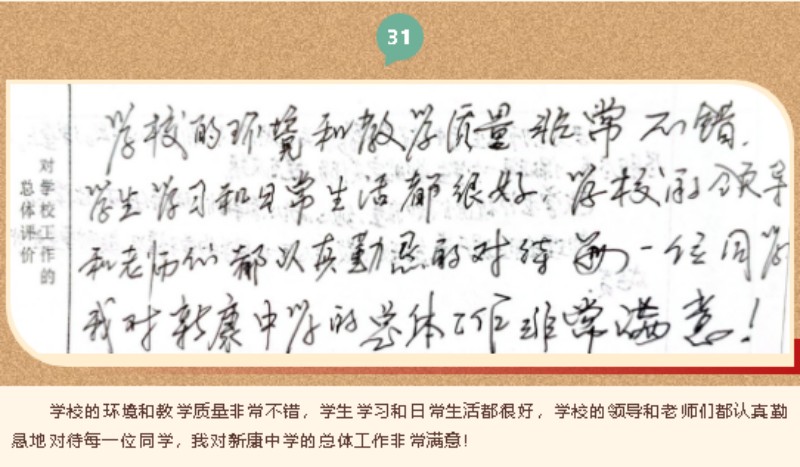 31
对学校工作的
总体评价
学校的环境和教学质量非常不错.
学生学习和日常生活都很好.学校的领导
和老师们都认真勤恳的对待每一位同学
我对新康中学的总体工作非常满意!
学校的环境和教学质量非常不错，学生学习和日常生活都很好，学校的领导和老师们都认真勤
恳地对待每一位同学，我对新康中学的总体工作非常满意!